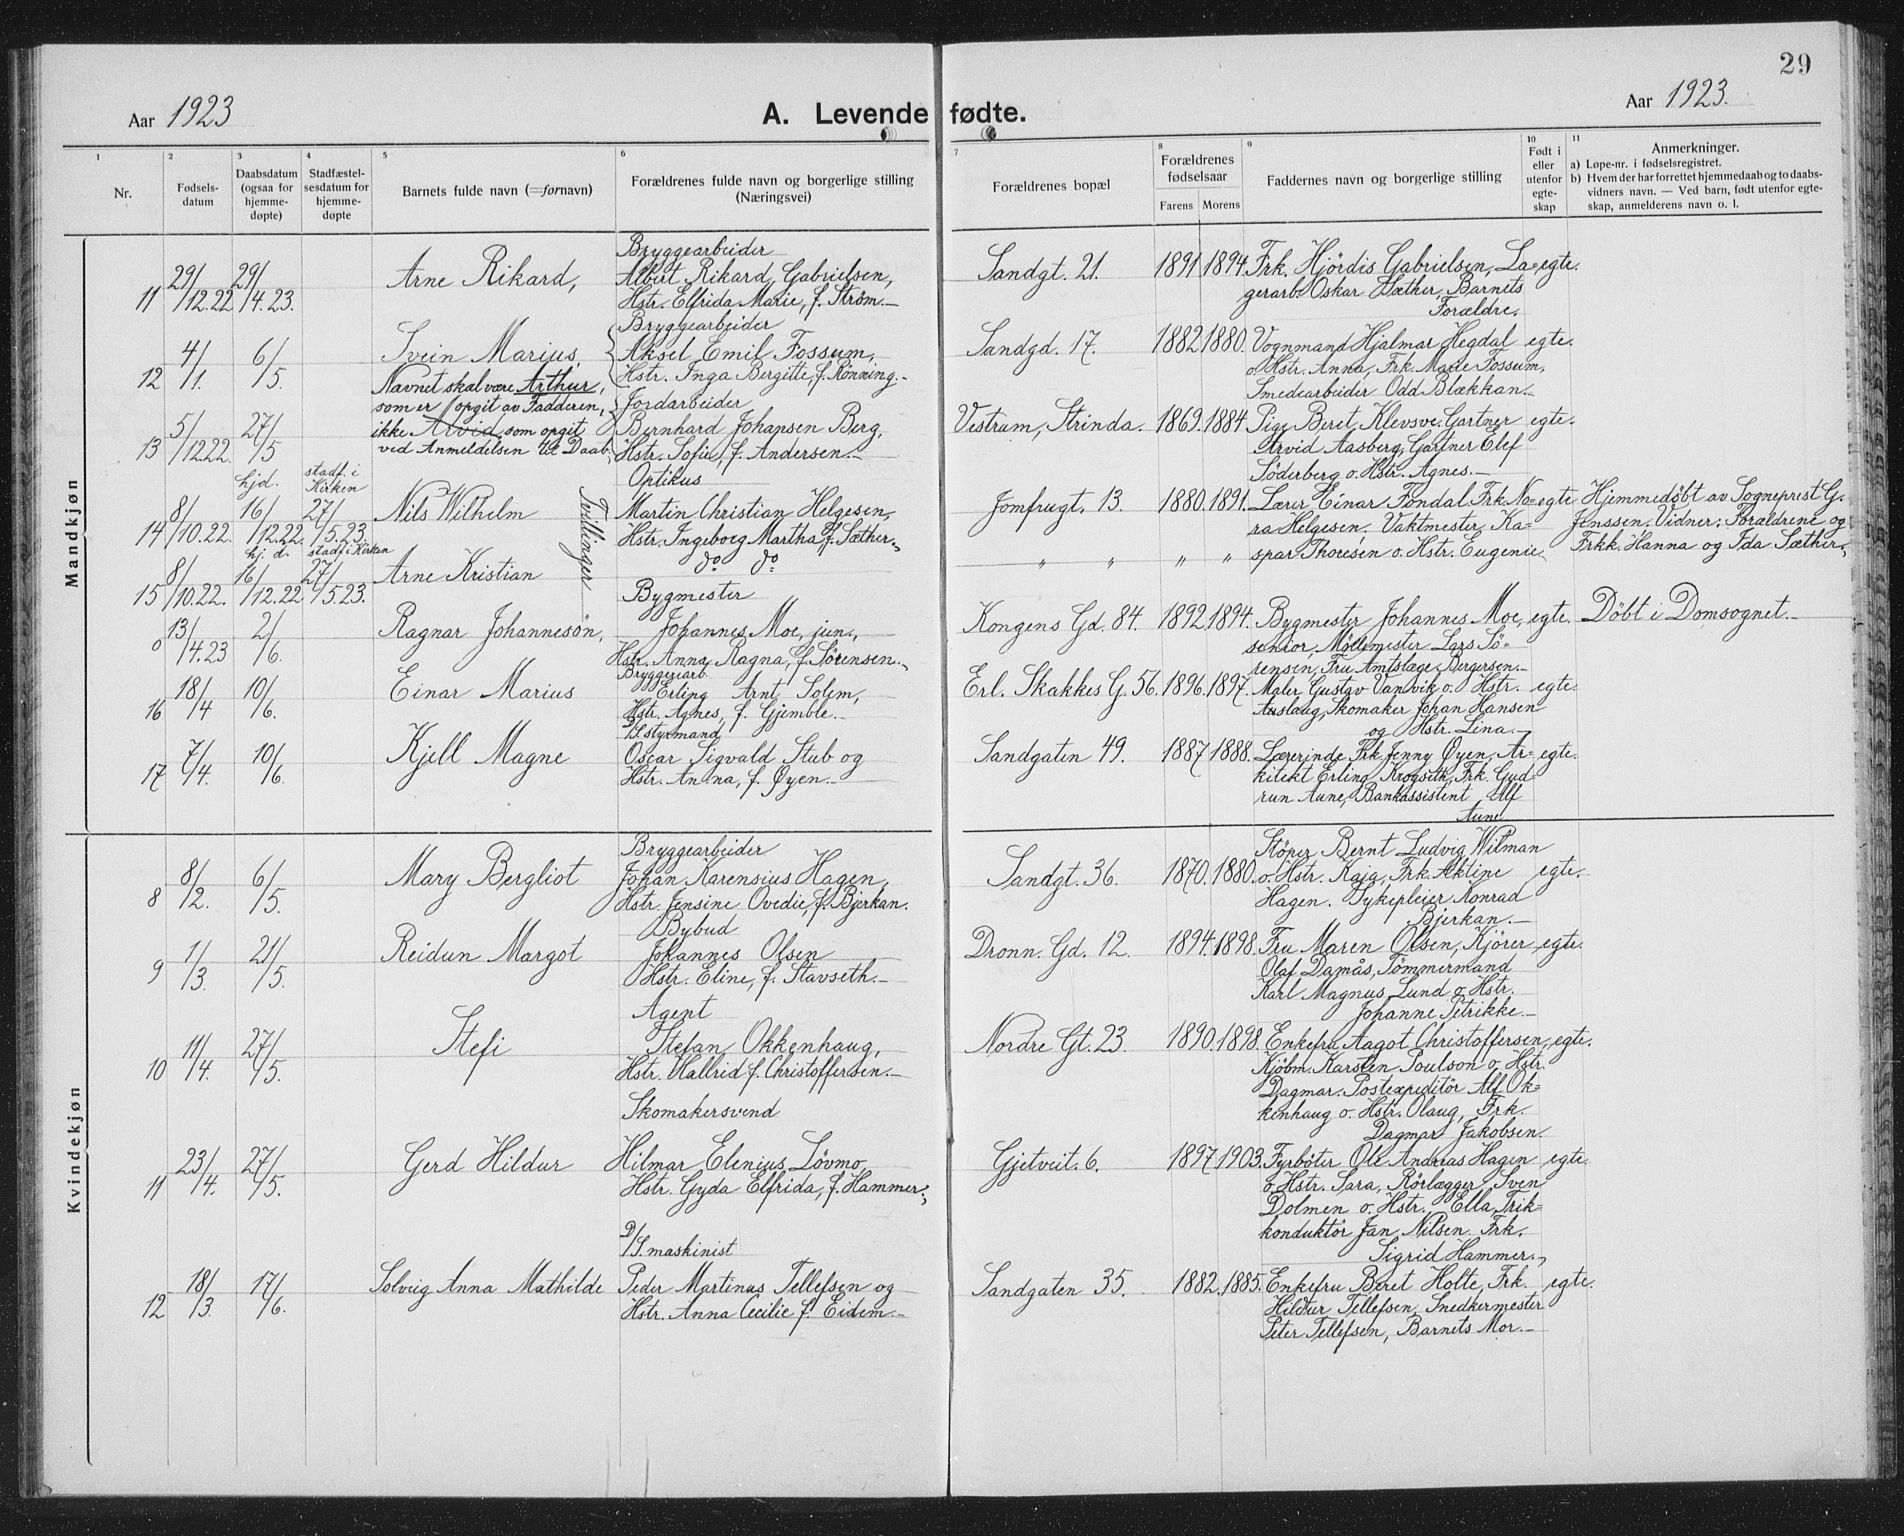 29
Aar 1923
A. Levende fødte.
Aar 1923.
1 Nr.
2 Fødsels-datum
3 Daabsdatum (ogsaa for hjemme-døpte)
4 Stadfæstel-sesdatum for hjemme-døpte
5 Barnets fulde navn (= fornavn)
6 Forældrenes fulde navn og borgerlige stilling (Næringsvei)
7 Forældrenes bopæl
8 Forældrenes fødselsaar
Farens Morens
9 Faddernes navn og borgerlige stilling
10 Født i eller utenfor egte-skap
11 Anmerkninger.
a) Løpe-nr. i fødselsregistret.
b) Hvem der har forrettet hjemmedaab og to daabs-
vidners navn. — Ved barn, født utenfor egte-
skap, anmelderens navn o. l.
Mandkjøn
11 29/12.22 29/4.23. Arne Rikard,
Bryggearbeider
Albert Rikard Gabrielsen,
Hstr. Elfrida Marie, f. Strøm.—
Sandgt. 21. 1891 1894.
Frk. Hjördis Gabrielsen, La= egte.
gerarb. Oskar Sæther, Barnets
Forældre.
12 4/1. 6/5. Svein Marius,
Bryggearbeider
Aksel Emil Fossum,
Hstr. Inga Bergitte, f. Rønning.-
Sandgd. 17. 1882 1880.
Vognmand Hjalmar Hegdal egte.
o Hstr. Anna, Frk. Marie Fossum,
Smedearbeider Odd Blækkan.—
13 5/12.22. 27/5
Navnet skal være Arthur,
som er opgit av Fadderen,
ikke Arvid, som opgit
ved Anmeldelsen til Daab.
Jordarbeider
Bernhard Johansen Berg,
Hstr. Sofie, f. Andersen.—
Vestrum, Strinda. 1869. 1884.
Pige Beret Klevsve. Gartner egte.
Arvid Aasberg, Gartner Olef
Söderberg o. Hstr. Agnes.—
14 8/10.22. hjd. 16/12.22. stadf. i Kirken 27/5.23. Nils Wilhelm
Tvillinger
Optikus
Martin Christian Helgesen,
Hstr. Ingeborg Martha f. Sæther.
Jomfrugt. 13. 1880. 1891.
Lærer Einar Fondal. Frk. No= egte
ra Helgesen, Vaktmester Ka=
spar Thoresen o. Hstr. Eugenie
Hjemmedöbt av Sogneprest G.
Jenssen. Vidner: Forældrene og
Frkk. Hanna og Ida Sæther.
15 8/10.22. hj. d. 16/12.22 stadf i Kirken 27/5.23. Arne Kristian
do do
" " " "
0 13/4.23 2/6. Ragnar Johannesön,
Bygmester
Johannes Moe, jun.,
Hstr. Anna Ragna, f. Sörensen.
Kongens Gd. 84. 1892. 1894.
Bygmester Johannes Moe, egte.
senior, Møllemester Lars Sö=
rensen, Fru Bergersen.—
Döbt i Domsognet.—
16 18/4 10/6. Einar Marius
Bryggearb.
Erling Arnt Solem,
Hstr. Agnes, f. Gjemble.—
Erl. Skakkes G. 56. 1896. 1897.
Maler Gustav Vanvik o. Hstr. egte.
Auslaug, Skomaker Johan Hansen
og Hstr. Lina.—
17 7/4. 10/6. Kjell Magne
D/S. styrmand
Oscar Sigvald Stub og
Hstr. Anna, f. Øyen.—
Sandgaten 49. 1887 1888.
Lærerinde Frk. Jenny Øyen, Ar= egte.
kitekt Erling Krogseth, Frk. Gud=
run Aune, Bankassistent Alf
Aune
Kvindekjøn
8 8/2. 6/5. Mary Bergliot
Bryggearbeider
Johan Karensius Hagen,
Hstr. Jensine Ovedie, f. Bjerkan.
Sandgt. 36. 1870. 1880.
Stöper Bernt Ludvig Wilman
o. Hstr. Kaja, Frk. Aktine egte.
Hagen. Sykepleier Konrad
Bjerkan.—
9 1/3. 21/5. Reidun Margot
Bybud
Johannes Olsen
Hstr. Eline, f. Stavseth.—
Dronn. Gd. 12. 1894. 1898.
Fru Maren Olsen, Kjörer egte.
Olaf Damås, Tömmermand
Karl Magnus Lund o. Hstr.
Johanne Petrikke.—
10 11/4. 27/5. Stefi
Agent
Stefan Okkenhaug,
Hstr. Hallrid f. Christoffersen.—
Nordre Gt. 23. 1890. 1898.
Enkefru Aagot Christoffersen, egte.
Kjöbm. Karsten Poulson o. Hstr.
Dagmar. Postexpeditör Alf Ok=
kenhaug o. Hstr. Olaug, Frk.
Dagmar Jakobsen.
11 23/4. 27/5. Gerd Hildur
Skomakersvend
Hilmar Elenius Lövmo,
Hstr. Gyda Elfrida, f. Hammer.
Gjetveit. 6. 1897 1903.
Fyrböter Ole Andreas Hagen egte.
o. Hstr. Sara, Rörlægger Sven
Dolmen o. Hstr. Ella, Trik=
konduktör Jan Nilsen. Frk.
Sigrid Hammer.
12 18/3 17/6. Solveig Anna Mathilde
D/S. maskinist
Peder Martinus Tellefsen og
Hstr. Anna Cecilie f. Eidem.—
Sandgaten 35. 1882. 1885.
Enkefru Beret Holte, Frk. egte.
Hildur Tellefsen, Snedkermester
Peter Tellefsen, Barnets Mor.—